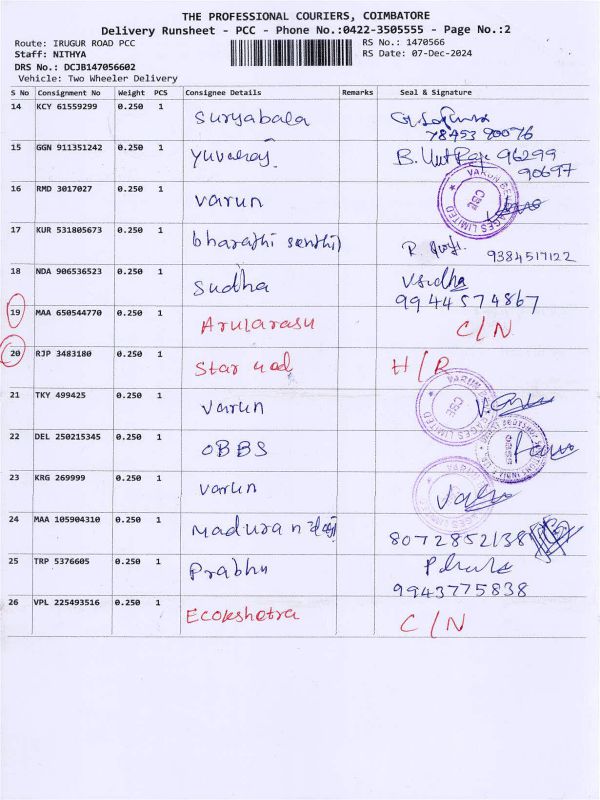 THE PROFESSIONAL COURIERS, COIMBATORE
Delivery Runsheet - PCC - Phone No.:0422-3505555 - Page No.:2
Route: IRUGUR ROAD PCC RS No.: 1470566
Staff: NITHYA RS Date: 07-Dec-2024
DRS No.: DCJB147056602
Vehicle: Two Wheeler Delivery
S No Consignment No Weight PCS Consignee Details Remarks Seal & Signature
14 KCY 61559299 0.250 1 Suryabala
78453 90076
15 GGN 911351242 0.250 1 Yuvaraj 96299
90697
16 RMD 3017027 0.250 1 Varun CBE
17 KUR 531805673 0.250 1 bharathi senthil 9384517122
18 NDA 906536523 0.250 1 Sudha Vsudha
9944574867
19 MAA 650544770 0.250 1 Arularasu C/N
20 RJP 3483180 0.250 1 Star H/R
21 TKY 499425 0.250 1 Varun CBE
22 DEL 250215345 0.250 1 OBBS
23 KRG 269999 0.250 1 Varun
24 MAA 105904310 0.250 1 Madura 8072852138
25 TRP 5376605 0.250 1 Prabhu
9943775838
26 VPL 225493516 0.250 1 Ecokshetra C/N